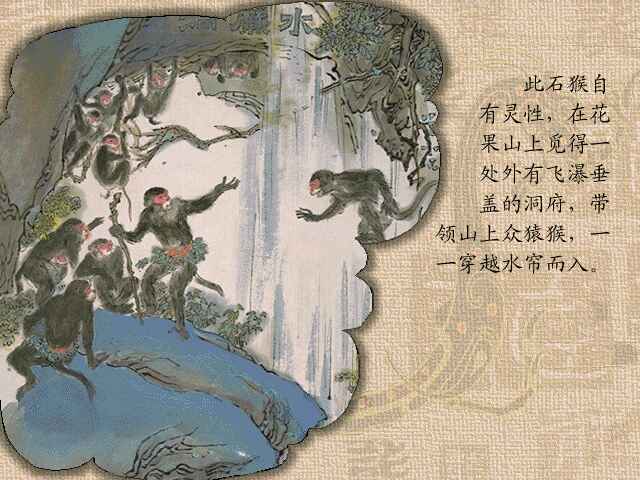 水帘洞
此石猴自
有灵性，在花
果山上觅得一
处外有飞瀑垂
盖的洞府，带
领山上众猿猴，一
一穿越水帘而入。